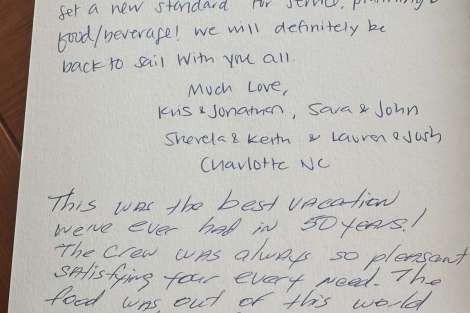 set a new standard for service, planning &
food/beverage! we will definitely be
back to sail with you all.
Much Love,
Kris & Jonathan, Sara & John
Shevela & Keith & Lauren & Josh
Charlotte NC
This was the best vacation
we've ever had in 50 years!
The crew was always so pleasant
satisfying four every need. The
food was out of this world